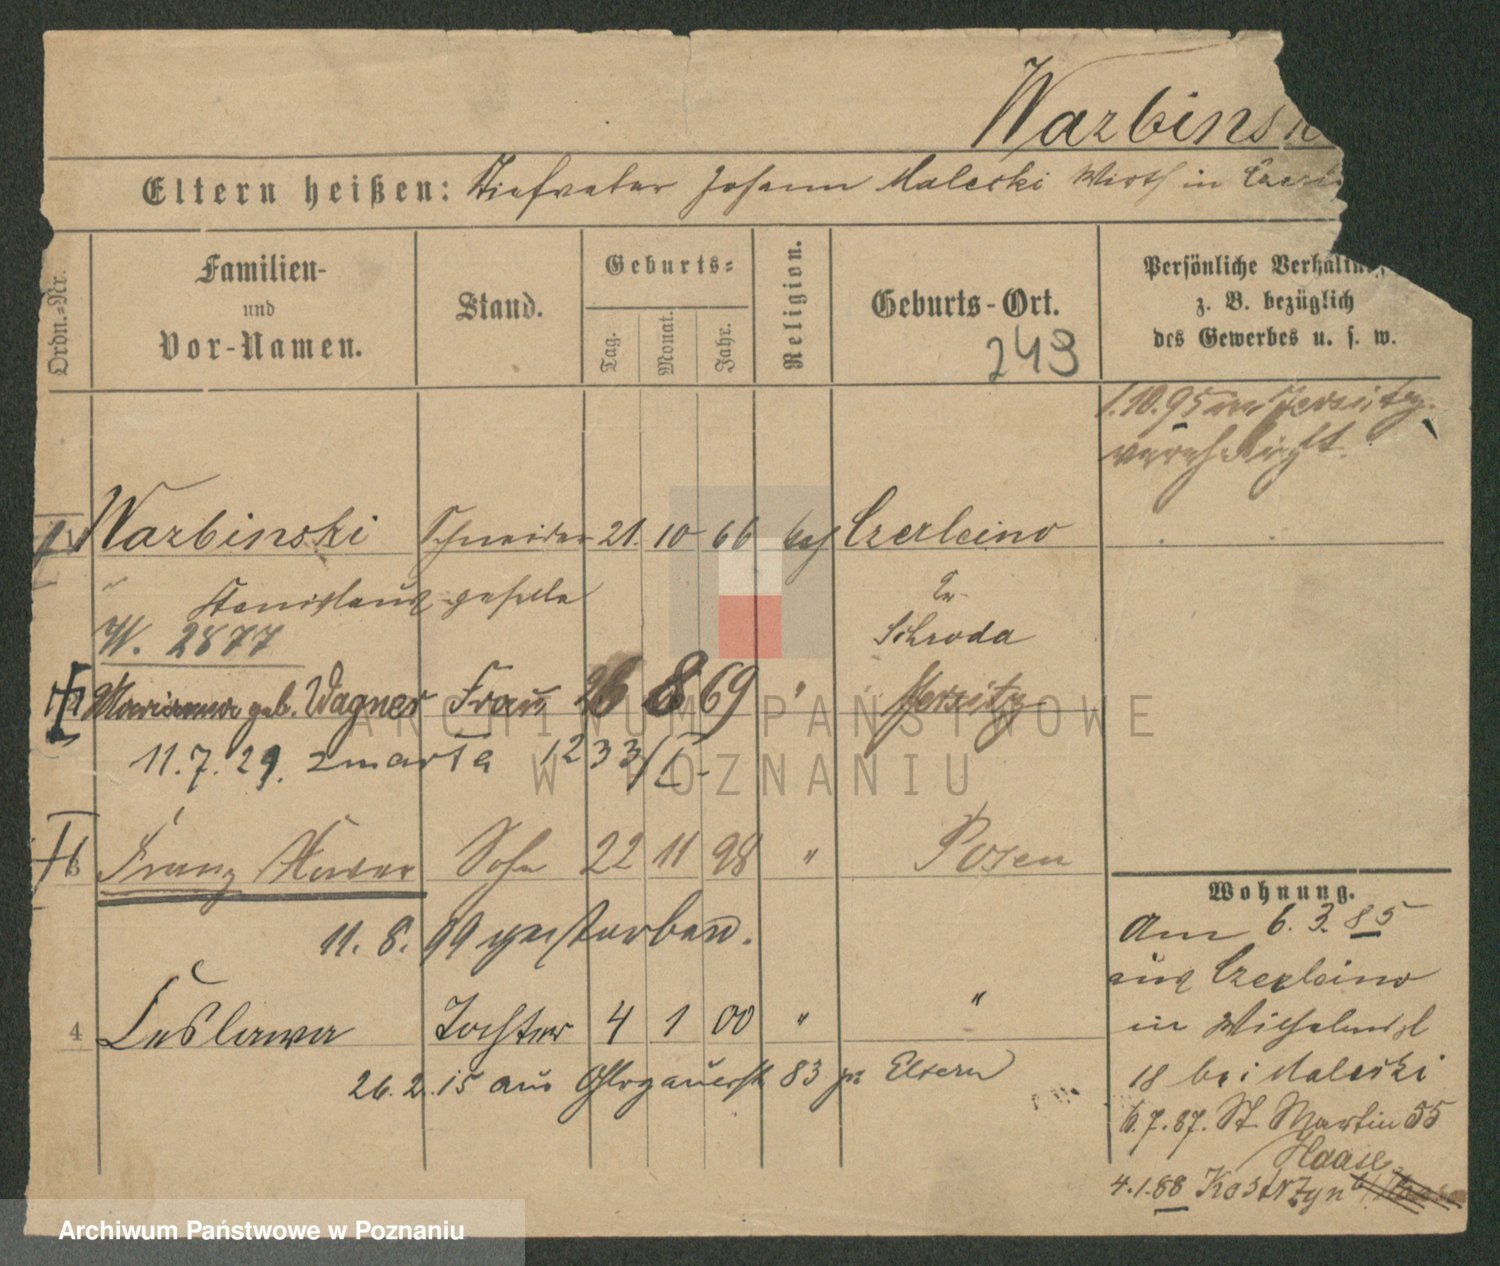 Warbinsk
Eltern heißen: Stiefvater Johann Maleski Wirth in
Ordn.=Nr.
Familien-
und
Vor-Namen.
Stand.
Geburts=
Tag.
Monat.
Jahr.
Religion.
Geburts-Ort.
249
Persönliche Verhältn
z. B. bezüglich
des Gewerbes u. s. w.
1.10.95 in Jersitz
verehelicht
1 Warbinski Schneider 21. 10 66 kath Czerleino
Stanislaus geselle Kr.
Schroda
W. 2877
Marianna geb. Wagner Frau 26 8 69 " Jersitz
11.7.29. zmarła 1233/I
3 Franz Sohn 22 11 98 " Posen
11. 8. 99 gestorben.
4 Ceslawa Tochter 4 1 00 " "
26. 2. 15 aus Glogauerstr 83 zu Eltern
Wohnung.
Am 6. 3. 85
aus Czerleino
in Wilhelmspl
18 bei Maleski
6.7.87. St Martin 55
Haase
4.1.88 Kostrzyn
ARCHIWUM PAŃSTWOWE
W POZNANIU
Archiwum Państwowe w Poznaniu